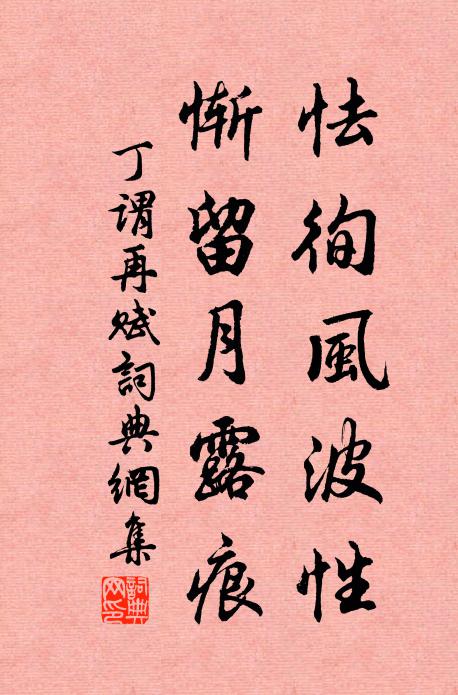 怯徇風波性
慚留月露痕
丁謂再赋詞典網集
詞典網印